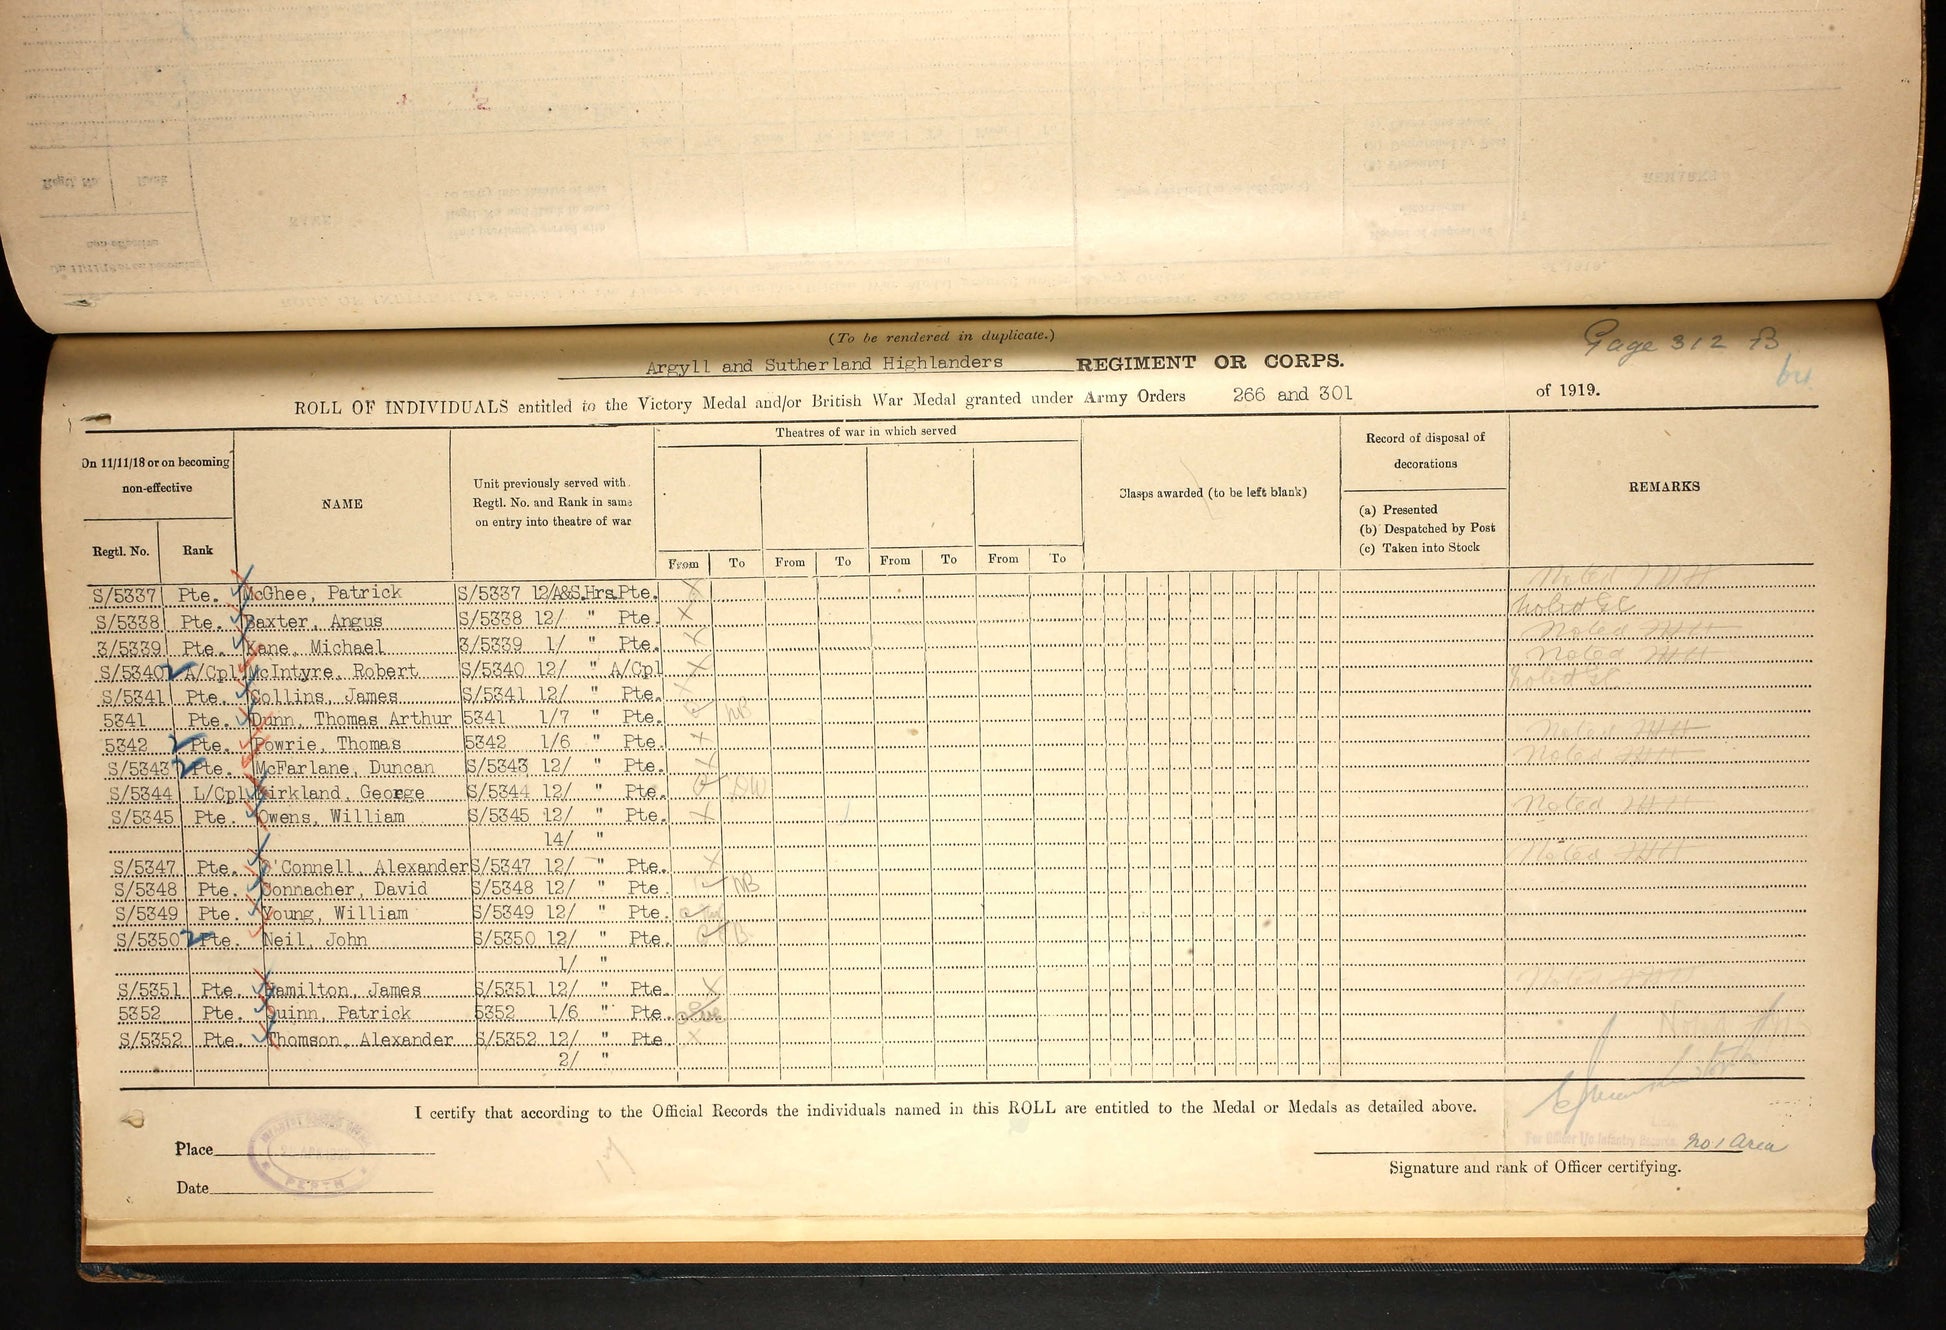 (To be rendered in duplicate.)
Page 312 B
Argyll and Sutherland Highlanders REGIMENT OR CORPS.
ROLL OF INDIVIDUALS entitled to the Victory Medal and/or British War Medal granted under Army Orders 266 and 301 of 1919.
On 11/11/18 or on becoming non-effective
Regtl. No.
Rank
NAME
Unit previously served with Regtl. No. and Rank in same on entry into theatre of war
Theatres of war in which served
From To From To From To From To
Clasps awarded (to be left blank)
Record of disposal of decorations
(a) Presented
(b) Despatched by Post
(c) Taken into Stock
REMARKS
S/5337 Pte. McGhee, Patrick S/5337 12/A&S.Hrs.Pte. X Noted
S/5338 Pte. Baxter, Angus S/5338 12/ " Pte. X Noted GC
3/5339 Pte. Kane, Michael 3/5339 1/ " Pte. X Noted
S/5340 A/Cpl McIntyre, Robert S/5340 12/ " A/Cpl X Noted
S/5341 Pte. Collins, James S/5341 12/ " Pte. X Noted GC
5341 Pte. Dunn, Thomas Arthur 5341 1/7 " Pte. NB
5342 Pte. Powrie, Thomas 5342 1/6 " Pte. X Noted
S/5343 Pte. McFarlane, Duncan S/5343 12/ " Pte. X Noted
S/5344 L/Cpl Kirkland, George S/5344 12/ " Pte. DW
S/5345 Pte. Owens, William S/5345 12/ " Pte. X Noted
14/ "
S/5347 Pte. O'Connell, Alexander S/5347 12/ " Pte. X Noted
S/5348 Pte. Connacher, David S/5348 12/ " Pte. NB
S/5349 Pte. Young, William S/5349 12/ " Pte.
S/5350 Pte. Neil, John S/5350 12/ " Pte. B
1/ "
S/5351 Pte. Hamilton, James S/5351 12/ " Pte. X Noted
5352 Pte. Quinn, Patrick 5352 1/6 " Pte.
S/5352 Pte. Thomson, Alexander S/5352 12/ " Pte. X
2/ "
I certify that according to the Official Records the individuals named in this ROLL are entitled to the Medal or Medals as detailed above.
Place
PERTH
For Officer I/c Infantry Records, No 1 Area
Signature and rank of Officer certifying.
Date